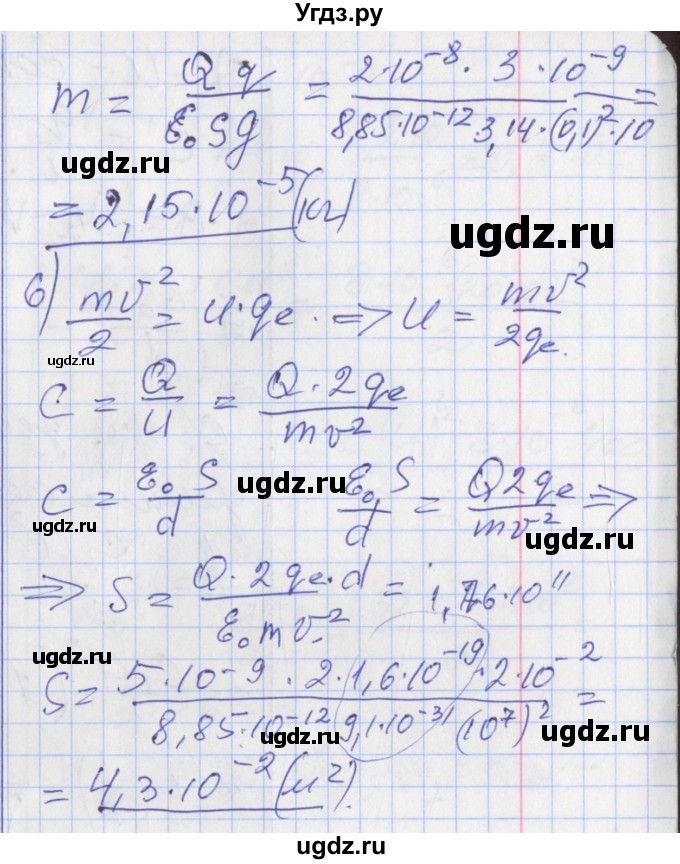 Угдз.ру
m = Q q / ε₀ S g = 2·10⁻⁸ · 3 · 10⁻⁹ / 8,85·10⁻¹² 3,14·(0,1)²·10 =
ugdz.ru
= 2,15·10⁻⁵ (кг)
ugdz.ru
ugdz.ru
6) mv²/2 = U·qe · => U = mv²/2qe.
ugdz.ru
C = Q/U = Q·2qe/mv²
C = ε₀ S/d ε₀ S/d = Q2qe/mv² =>
ugdz.ru
ugdz.ru
ugdz.ru
=> S = Q·2qe·d/ε₀mv² = 1,76·10¹¹
ugdz.ru
S = 5·10⁻⁹ · 2·1,6·10⁻¹⁹ · 2·10⁻² / 8,85·10⁻¹² 9,1·10⁻³¹ (10⁷)² =
ugdz.ru
ugdz.ru
= 4,3·10⁻² (м²).
ugdz.ru
ugdz.ru